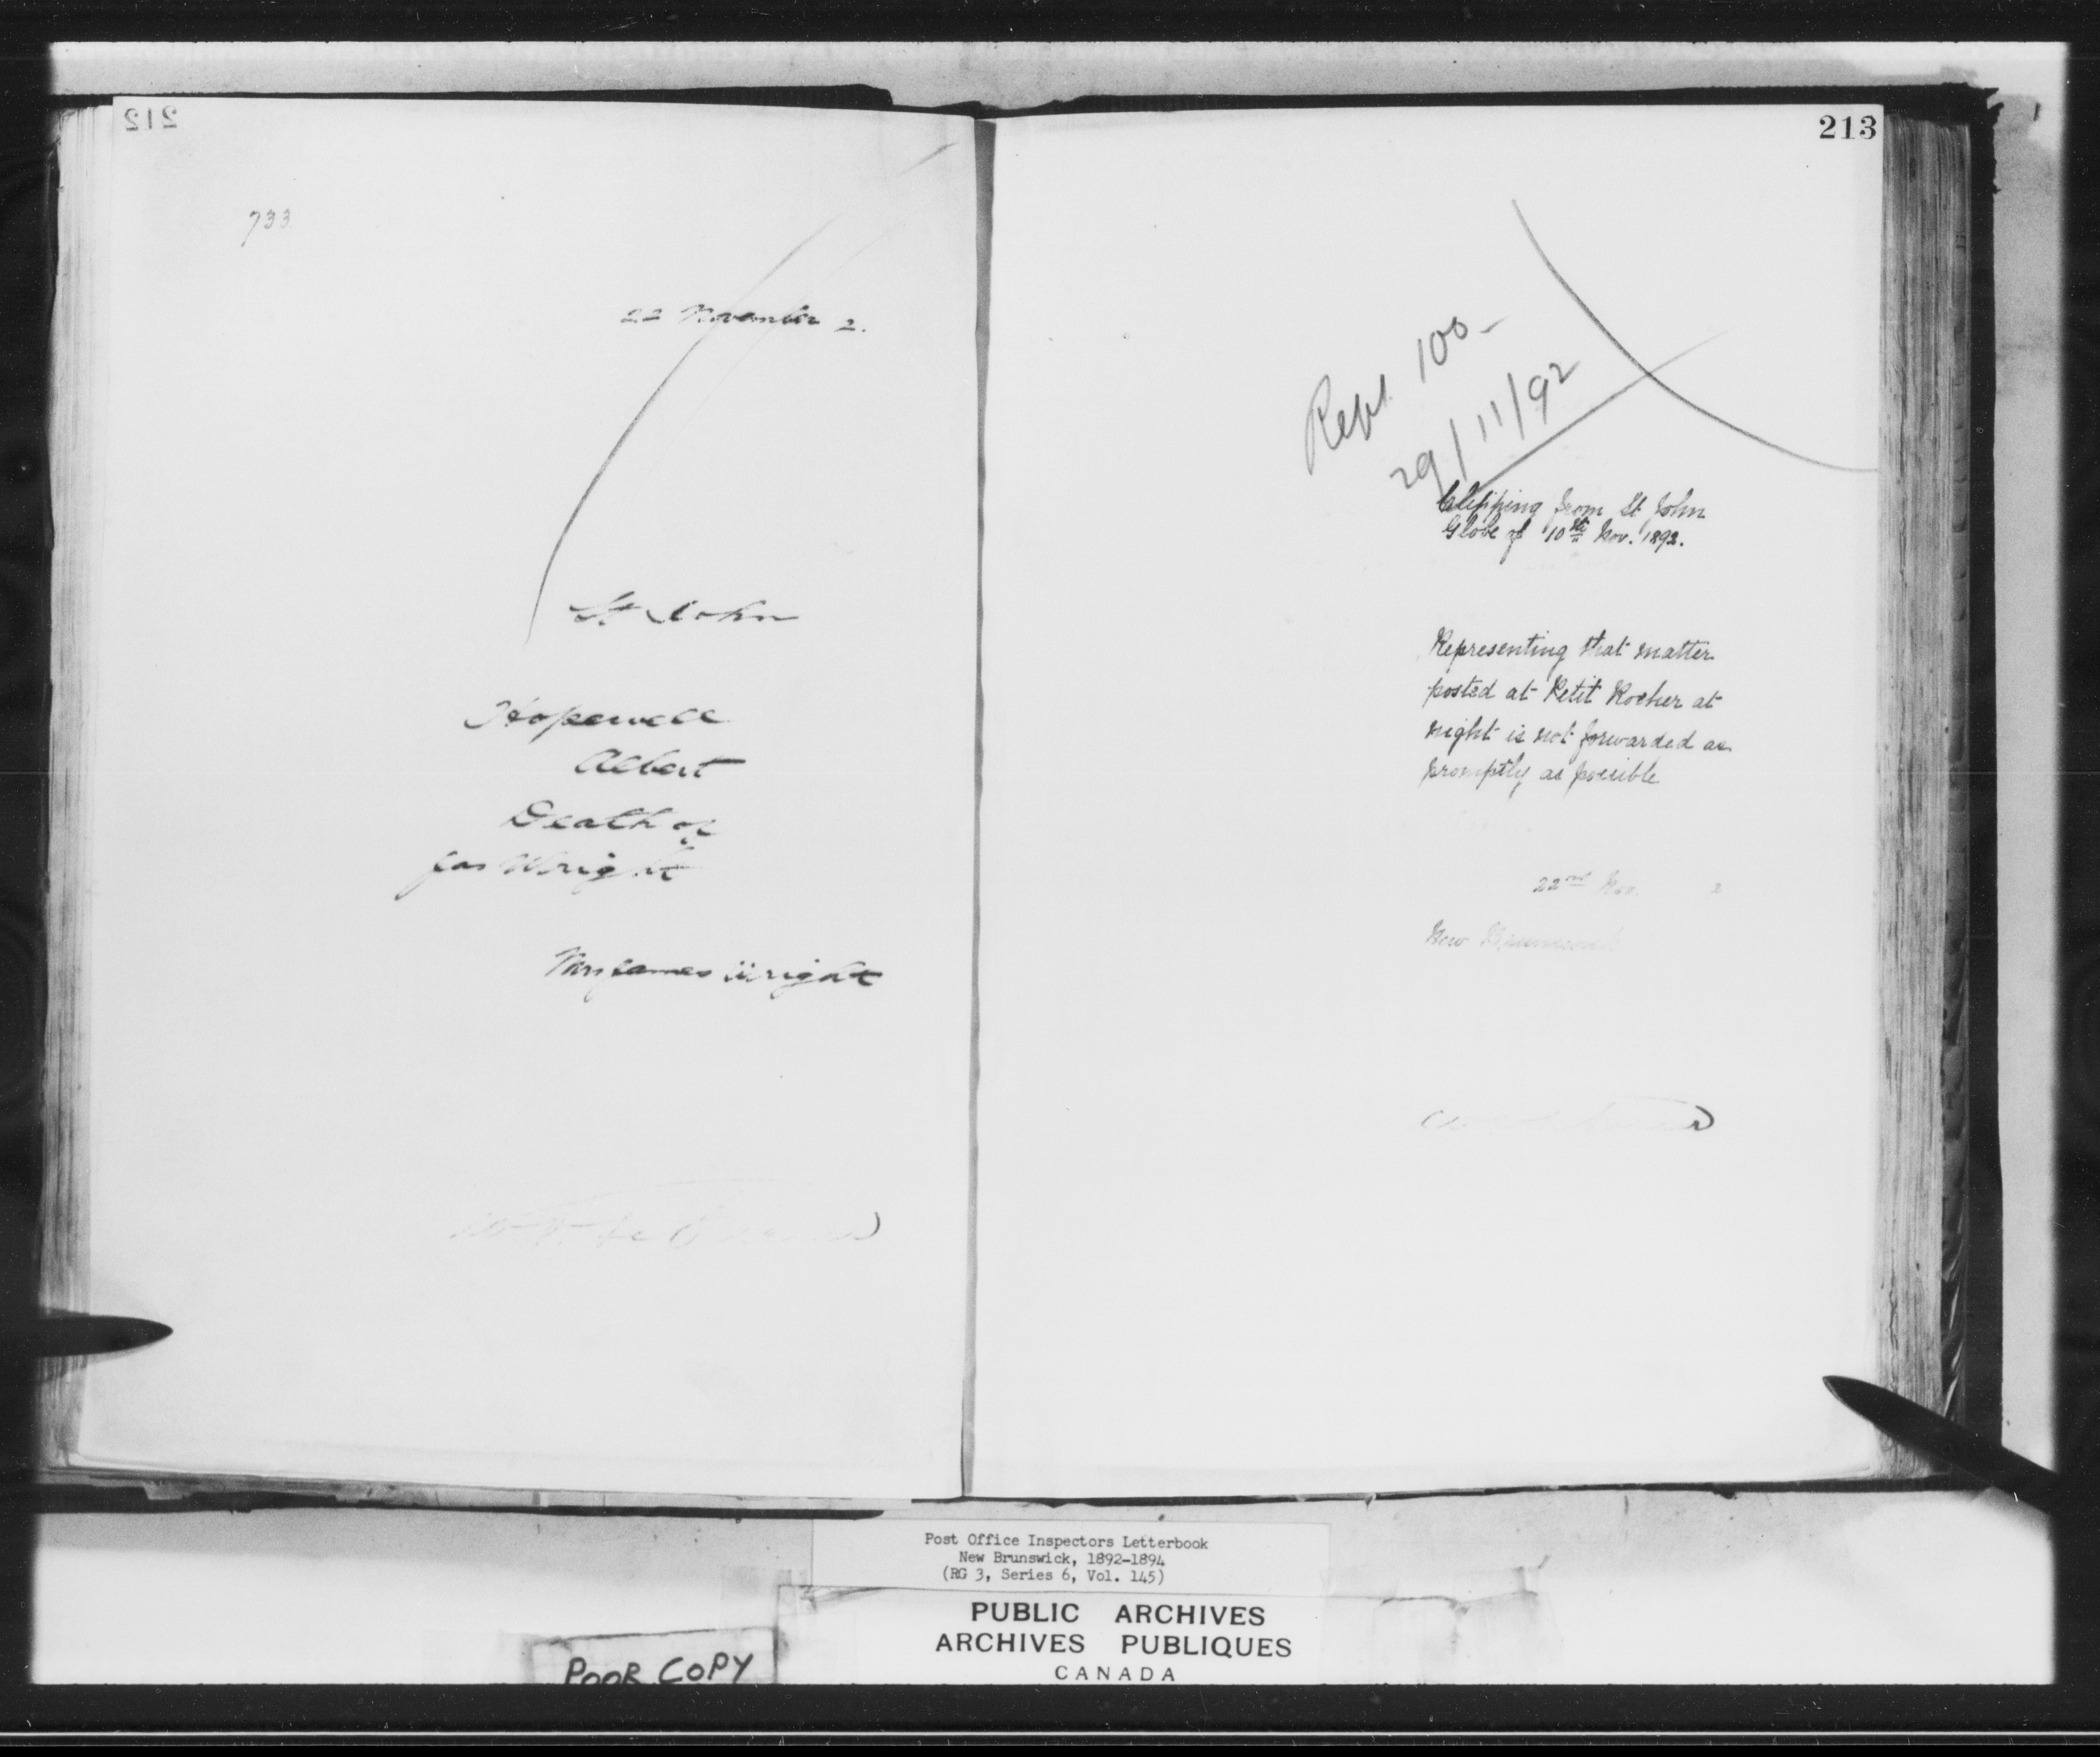 212
733
22 November 2.
St John
Hopewell
Albert
Death of
Jas Wright
Mrs James Wright
213
Rept 100-
29/11/92
Clipping from St. John
Globe of 10th Nov. 1892.
Representing that matter
posted at Petit Rocher at
night is not forwarded as
promptly as possible
22nd Nov. 2
New Brunswick
Post Office Inspectors Letterbook
New Brunswick, 1892-1894
(RG 3, Series 6, Vol. 145)
PUBLIC ARCHIVES
ARCHIVES PUBLIQUES
CANADA
POOR COPY